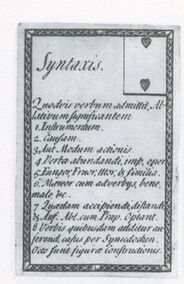 Syntaxis.
Quodvis verbum admittit, Ab-
lativum significantem
1 Instrumentum.
2 Causam.
3 Aut Modum actionis
4 Verba abundandi, impl, oner
5 Fungor, Fruor, Utor, & similia.
6 Mereor cum adverbijs, bene,
male &c.
7 Quædam accipiendi, distandi
& Auf. Abl. cum Præp. Optant.
8 Verbis quibusdam additur au-
ferendi, casus per Synecdochen.
Octo sunt figuræ Constructionis.